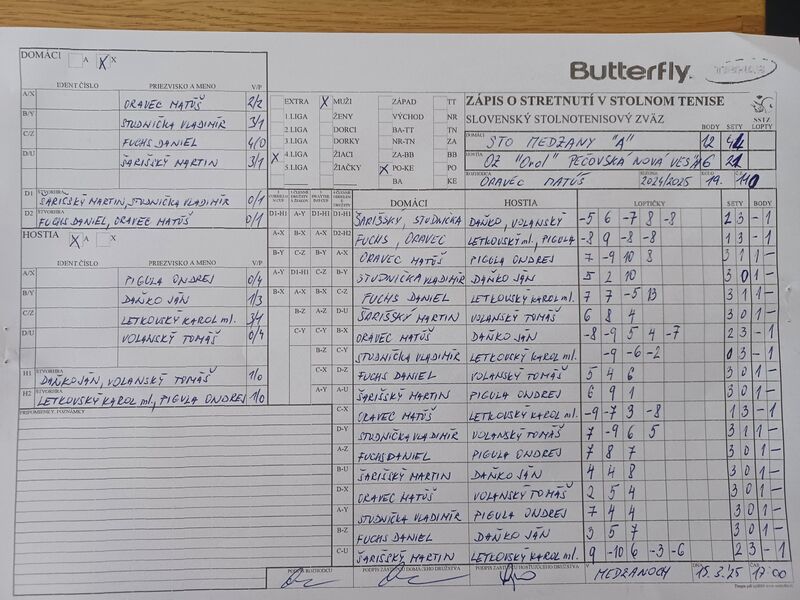 DOMÁCI A X X
Butterfly
IDENT.ČÍSLO PRIEZVISKO A MENO V/P
A/X ORAVEC MATÚŠ 2/2
B/Y STUDNIČKA VLADIMÍR 3/1
C/Z FUCHS DANIEL 4/0
D/U ŠARIŠSKÝ MARTIN 3/1
D1 ŠTVORHRA ŠARIŠSKÝ MARTIN, STUDNIČKA VLADIMÍR 0/1
D2 ŠTVORHRA FUCHS DANIEL, ORAVEC MATÚŠ 0/1
HOSTIA X A X
IDENT.ČÍSLO PRIEZVISKO A MENO V/P
A/X PIGULA ONDREJ 0/4
B/Y DAŇKO JÁN 1/3
C/Z LETKOVSKÝ KAROL ml. 3/1
D/U VOLANSKÝ TOMÁŠ 0/4
H1 ŠTVORHRA DAŇKO JÁN, VOLANSKÝ TOMÁŠ 1/0
H2 ŠTVORHRA LETKOVSKÝ KAROL ml., PIGULA ONDREJ 1/0
PRIPOMIENKY, POZNÁMKY
EXTRA X MUŽI ZÁPAD TT
1.LIGA ŽENY VÝCHOD NR
2.LIGA DORCI BA-TT TN
3.LIGA DORKY NR-TN ZA
X 4.LIGA ŽIACI ZA-BB BB
5.LIGA ŽIAČKY X PO-KE PO
BA KE
ZÁPIS O STRETNUTÍ V STOLNOM TENISE
SLOVENSKÝ STOLNOTENISOVÝ ZVÄZ
SSTZ
BODY SETY LOPTY
DOMÁCI STO MEDZANY "A" 12 44
HOSTIA OZ "Orol" PEČOVSKÁ NOVÁ VES 6 21
ROZHODCA ORAVEC MATÚŠ SEZÓNA 2024/2025 KOLO 19.
DOMÁCI HOSTIA LOPTIČKY SETY BODY
D1-H1 ŠARIŠSKÝ, STUDNIČKA DAŇKO, VOLANSKÝ -5 6 -7 8 -8 2 3 - 1
D2-H2 FUCHS, ORAVEC LETKOVSKÝ ml., PIGULA -8 9 -8 -8 1 3 - 1
A-X ORAVEC MATÚŠ PIGULA ONDREJ 7 -9 10 8 3 1 1 -
B-Y STUDNIČKA VLADIMÍR DAŇKO JÁN 5 2 10 3 0 1 -
C-Z FUCHS DANIEL LETKOVSKÝ KAROL ml. 7 7 -5 13 3 1 1 -
D-U ŠARIŠSKÝ MARTIN VOLANSKÝ TOMÁŠ 6 8 4 3 0 1 -
B-X ORAVEC MATÚŠ DAŇKO JÁN -8 -9 5 4 -7 2 3 - 1
C-Y STUDNIČKA VLADIMÍR LETKOVSKÝ KAROL ml. -9 -6 -2 0 3 - 1
D-Z FUCHS DANIEL VOLANSKÝ TOMÁŠ 5 4 6 3 0 1 -
A-U ŠARIŠSKÝ MARTIN PIGULA ONDREJ 6 9 1 3 0 1 -
C-X ORAVEC MATÚŠ LETKOVSKÝ KAROL ml. -9 -7 3 -8 1 3 - 1
D-Y STUDNIČKA VLADIMÍR VOLANSKÝ TOMÁŠ 7 -9 6 5 3 1 1 -
A-Z FUCHS DANIEL PIGULA ONDREJ 7 8 7 3 0 1 -
B-U ŠARIŠSKÝ MARTIN DAŇKO JÁN 4 4 8 3 0 1 -
D-X ORAVEC MATÚŠ VOLANSKÝ TOMÁŠ 2 5 4 3 0 1 -
A-Y STUDNIČKA VLADIMÍR PIGULA ONDREJ 7 4 4 3 0 1 -
B-Z FUCHS DANIEL DAŇKO JÁN 3 5 7 3 0 1 -
C-U ŠARIŠSKÝ MARTIN LETKOVSKÝ KAROL ml. 9 -10 6 -3 -6 2 3 - 1
PODPIS ROZHODCU PODPIS ZÁSTUPCU DOMÁCEHO DRUŽSTVA PODPIS ZÁSTUPCU HOSŤUJÚCEHO DRUŽSTVA V MEDZANOCH DŇA 15.3.25 ČAS 17:00